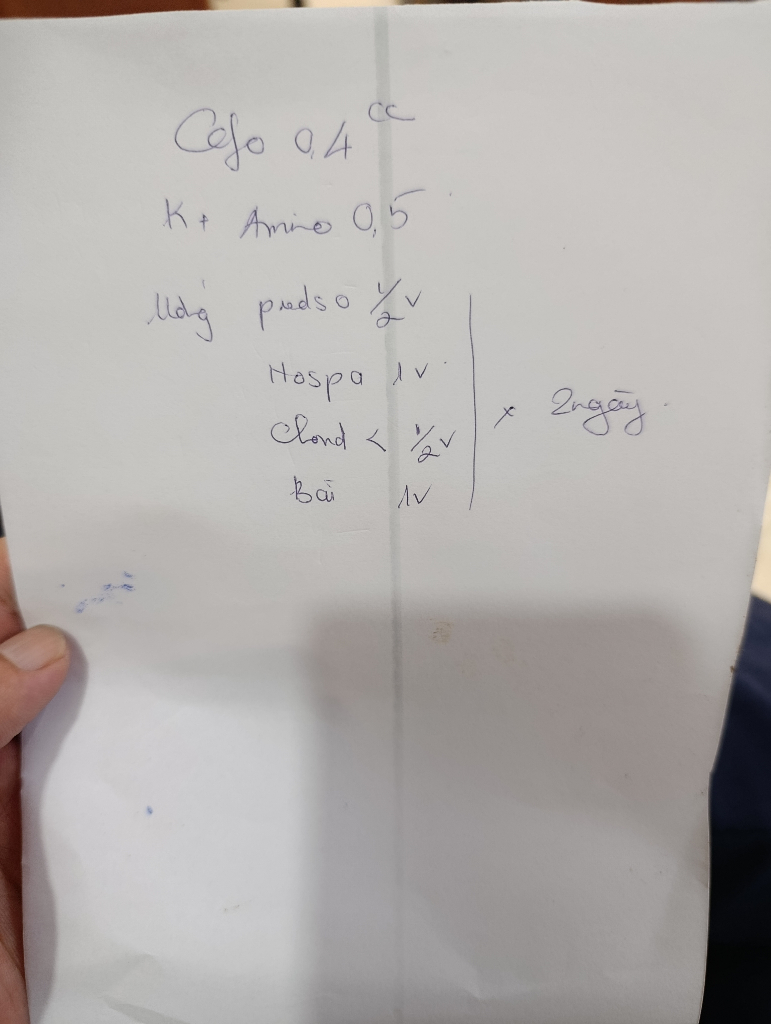 Cefo 0,4 cc
K+ Amino 0,5
predso 1/2 v
Nospa 1 v
< 1/2 v
Bai 1v
x 2 ngày